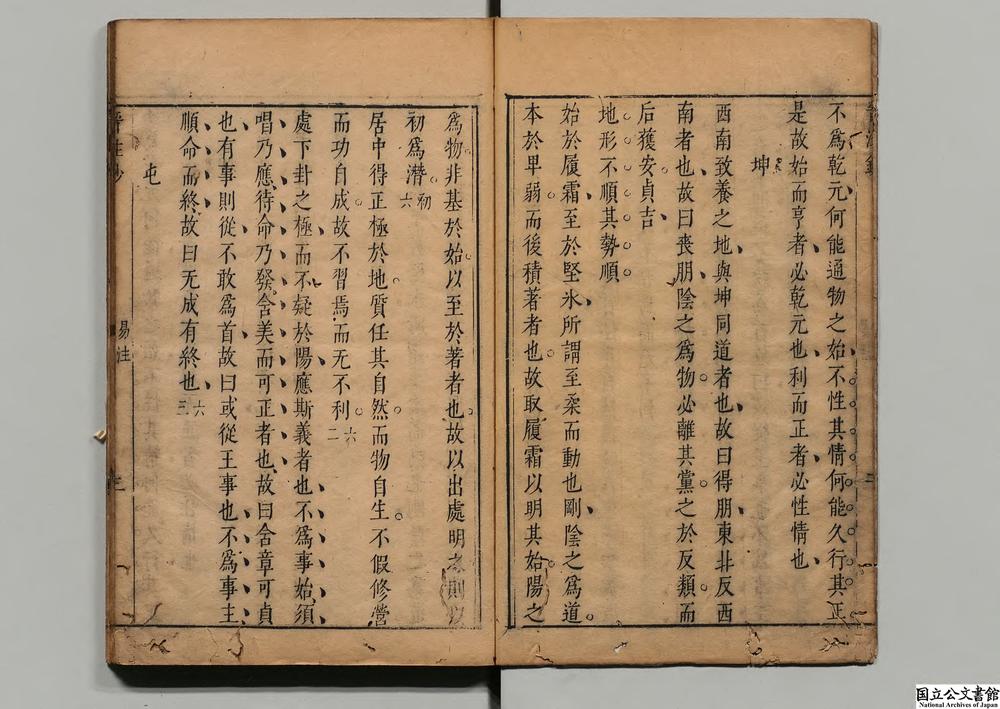 不爲乾元何能通物之始不性其情何能久行其正
是故始而亨者必乾元也利而正者必性情也
坤
西南致養之地與坤同道者也故曰得朋東北反西
南者也故曰喪朋陰之爲物必離其黨之於反類而
后獲安貞吉
地形不順其勢順
始於履霜至於堅氷所謂至柔而動也剛陰之爲道
本於卑弱而後積著者也故取履霜以明其始陽之
爲物非基於始以至於著者也故以出處明之則以
初爲潛 初六
居中得正極於地質任其自然而物自生不假修營
而功自成故不習焉而无不利 六二
處下卦之極而不疑於陽應斯義者也不爲事始須
唱乃應待命乃發含美而可正者也故曰含章可貞
也有事則從不敢爲首故曰或從王事也不爲事主
順命而終故曰无成有終也 六三
屯
易注
三
国立公文書館
National Archives of Japan